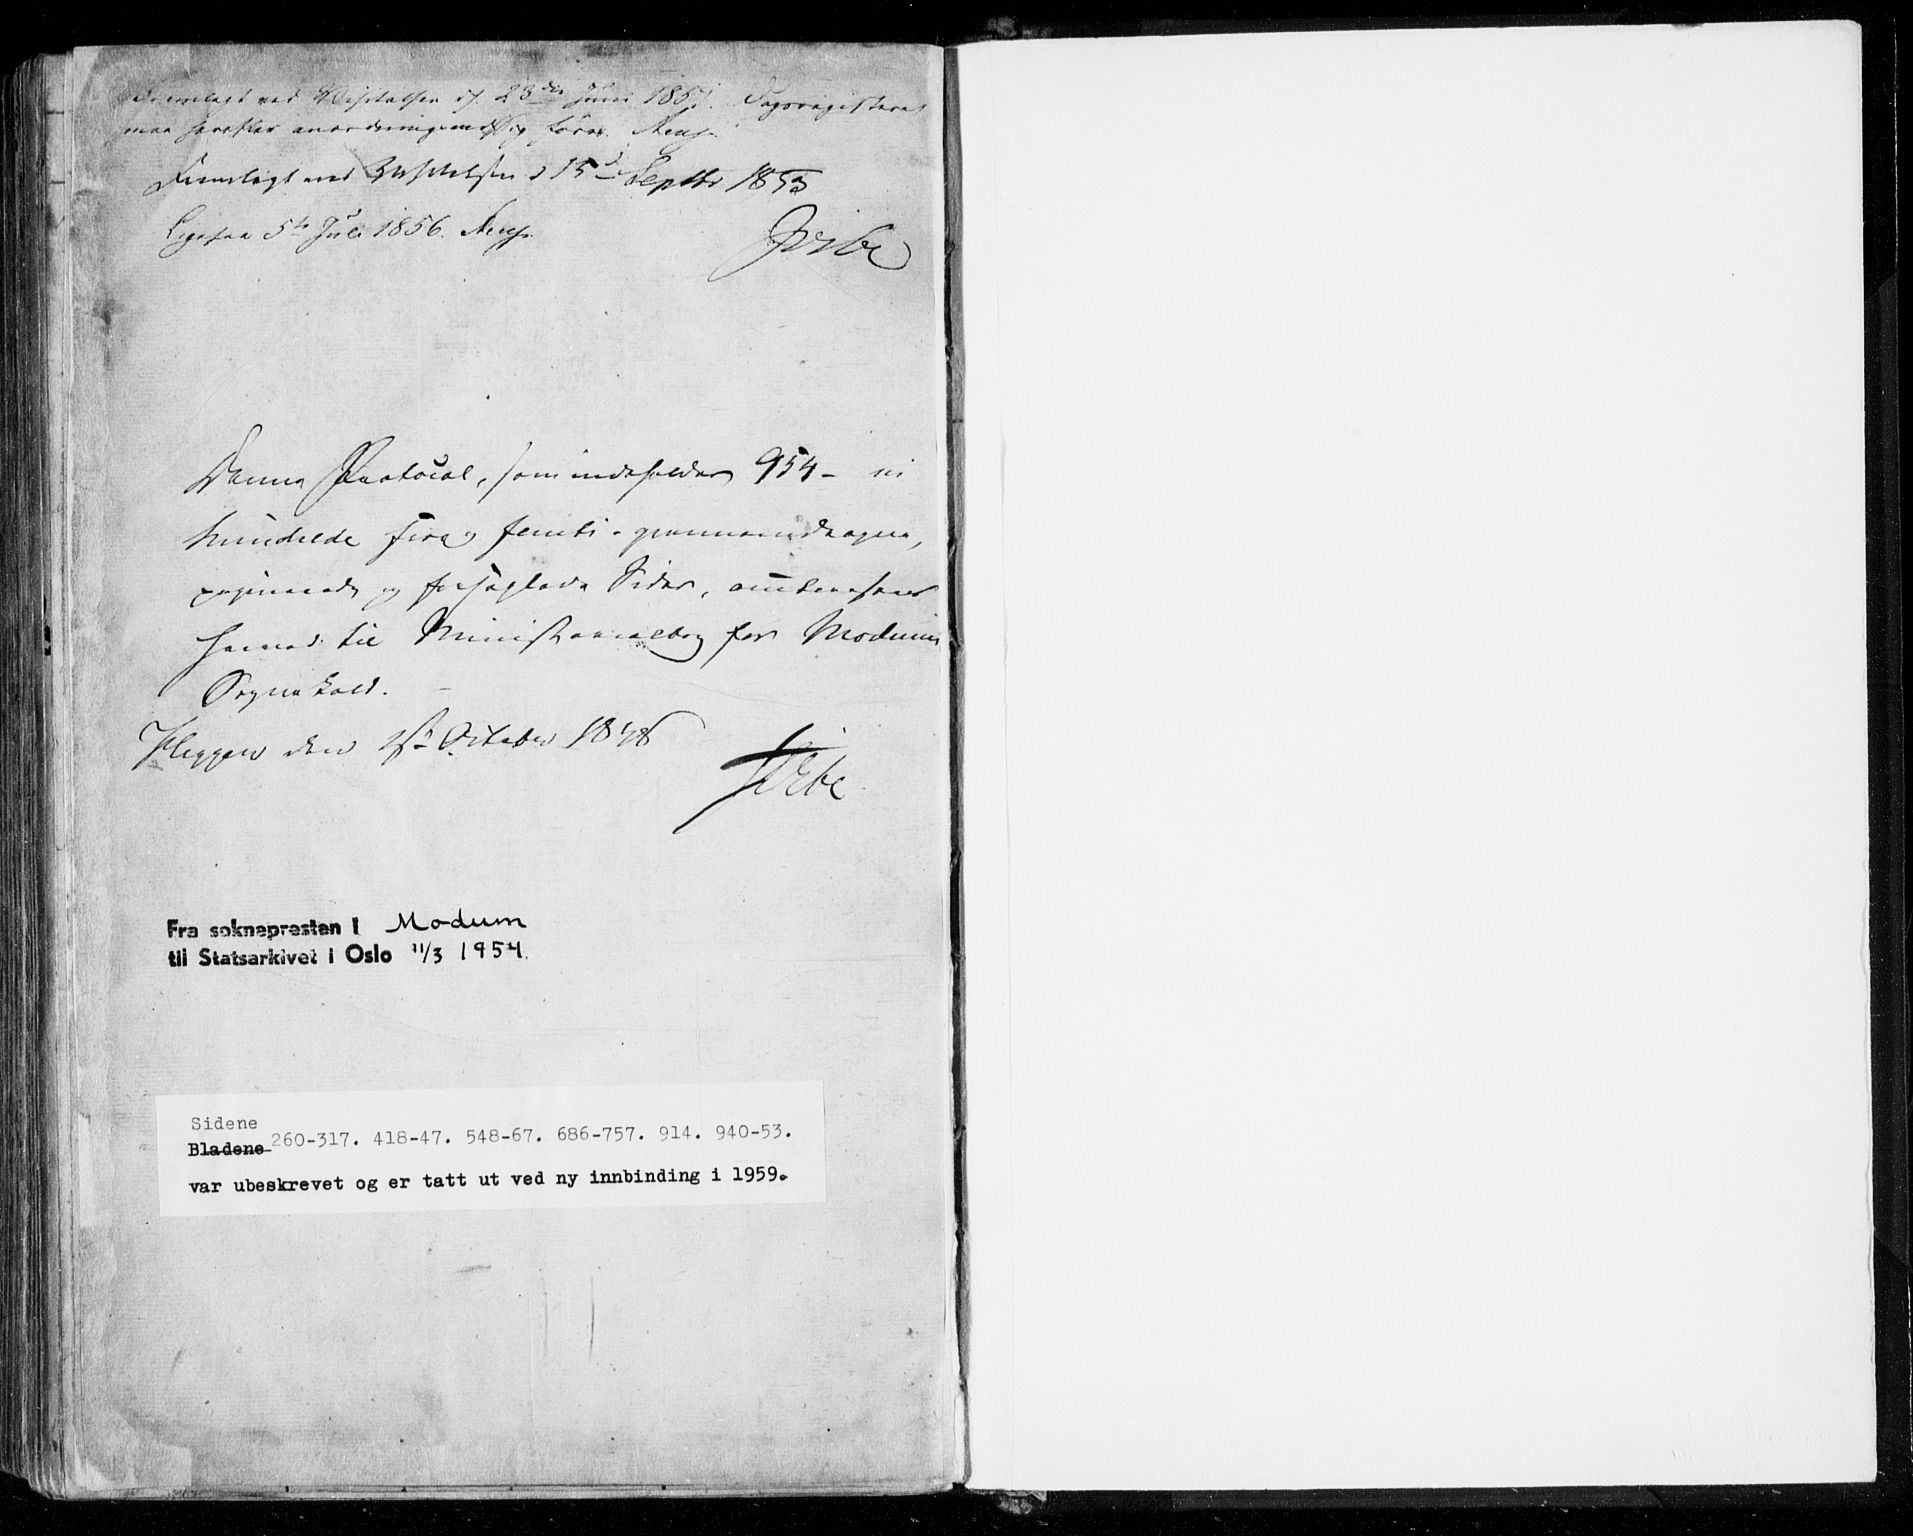 Fremlagt ved Visitatsen d. 28de Juni 1851. Dagsregisteret
maa herefter anordningsmæssig føres.
Fremlagt ved Visitatsen d 15d Septbr 1853
Ligesaa 5te Juli 1856.
Denne Protocol, som indeholder 954 - ni
hundrede fire og femti - gjennemdragne,
paginerede og forseglede Sider, autoriseres
herved til Ministerialbog for Modums
Sognekald.
den 1ste October 1848
Fra soknepresten i Modum
til Statsarkivet i Oslo 11/3 1954.
Sidene
Bladene 260-317. 418-47. 548-67. 686-757. 914. 940-53.
var ubeskrevet og er tatt ut ved ny innbinding i 1959.